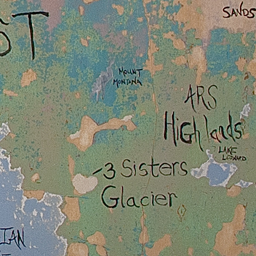 SANDS
ST
MOUNT
MONTANA
ARS
Highlands
LAKE
LEONARD
~3 Sisters
Glacier
IAN